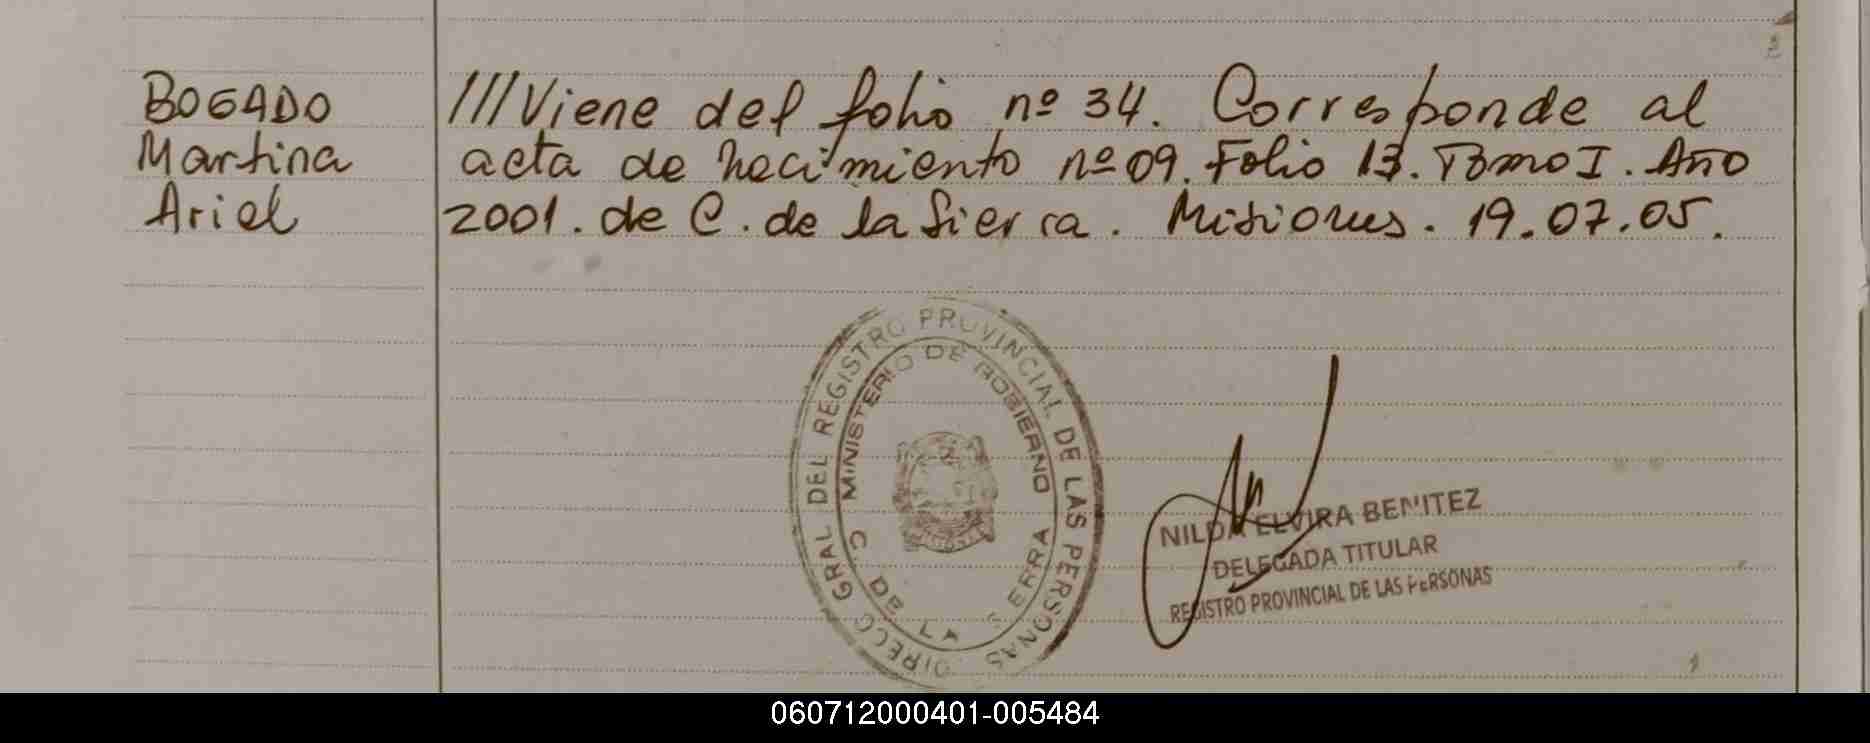 BOGADO
Martina
Ariel
///Viene del folio nº 34. Corresponde al
acta de nacimiento nº 09. Folio 13. Tomo I. Año
2001. de C. de la Sierra. Misiones. 19.07.05.
DIRECC GRAL DEL REGISTRO PROVINCIAL DE LAS PERSONAS
MINISTERIO DE GOBIERNO
C. DE LA SIERRA
NILDA ELVIRA BENITEZ
DELEGADA TITULAR
REGISTRO PROVINCIAL DE LAS PERSONAS
060712000401-005484